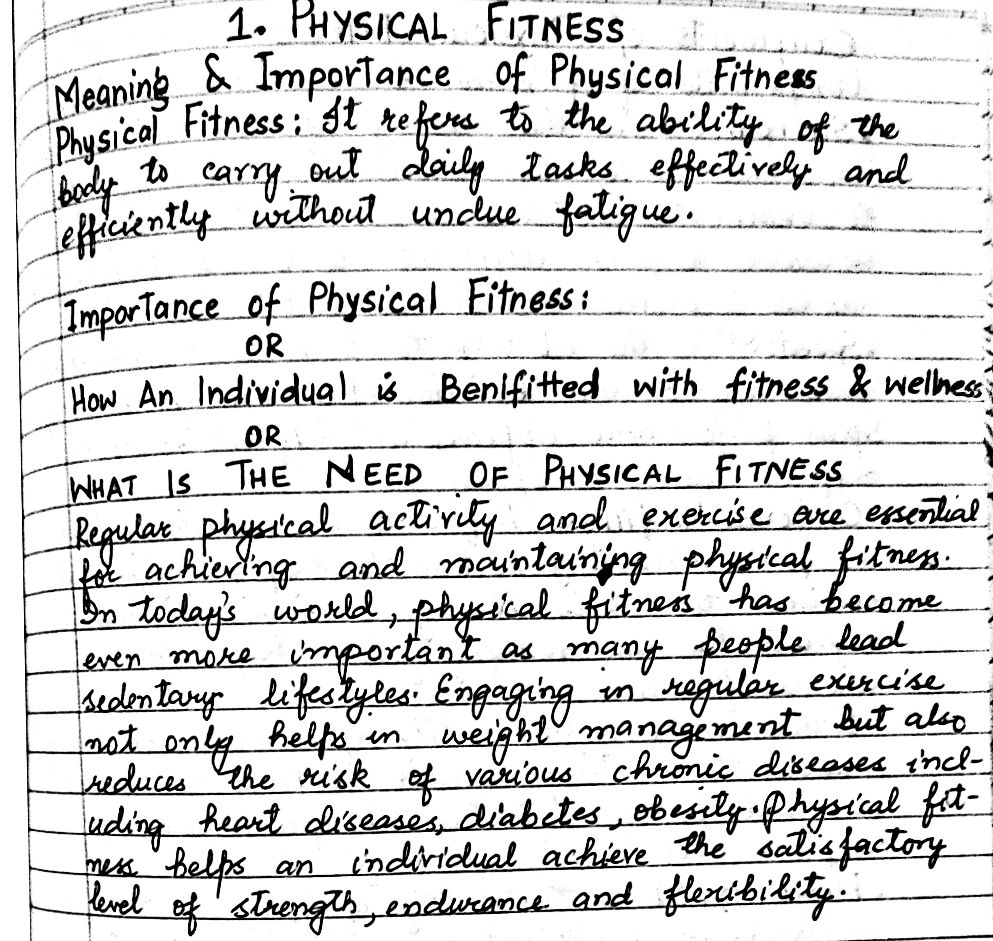 1. PHYSICAL FITNESS
Meaning & Importance of Physical Fitness
Physical Fitness: It refers to the ability of the
body to carry out daily tasks effectively and
efficiently without undue fatigue.
Importance of Physical Fitness:
OR
How An Individual is Benifitted with fitness & wellness
OR
WHAT IS THE NEED OF PHYSICAL FITNESS
Regular physical activity and exercise are essential
for achieving and maintaining physical fitness.
In today's world, physical fitness has become
even more important as many people lead
sedentary lifestyles. Engaging in regular exercise
not only helps in weight management but also
reduces the risk of various chronic diseases incl-
uding heart diseases, diabetes, obesity. Physical fit-
ness helps an individual achieve the satisfactory
level of strength, endurance and flexibility.